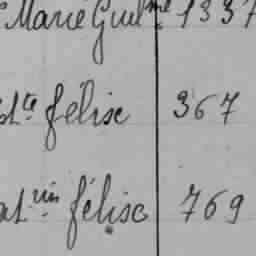 Marie Guil^me 1337
felise 367
félise 769